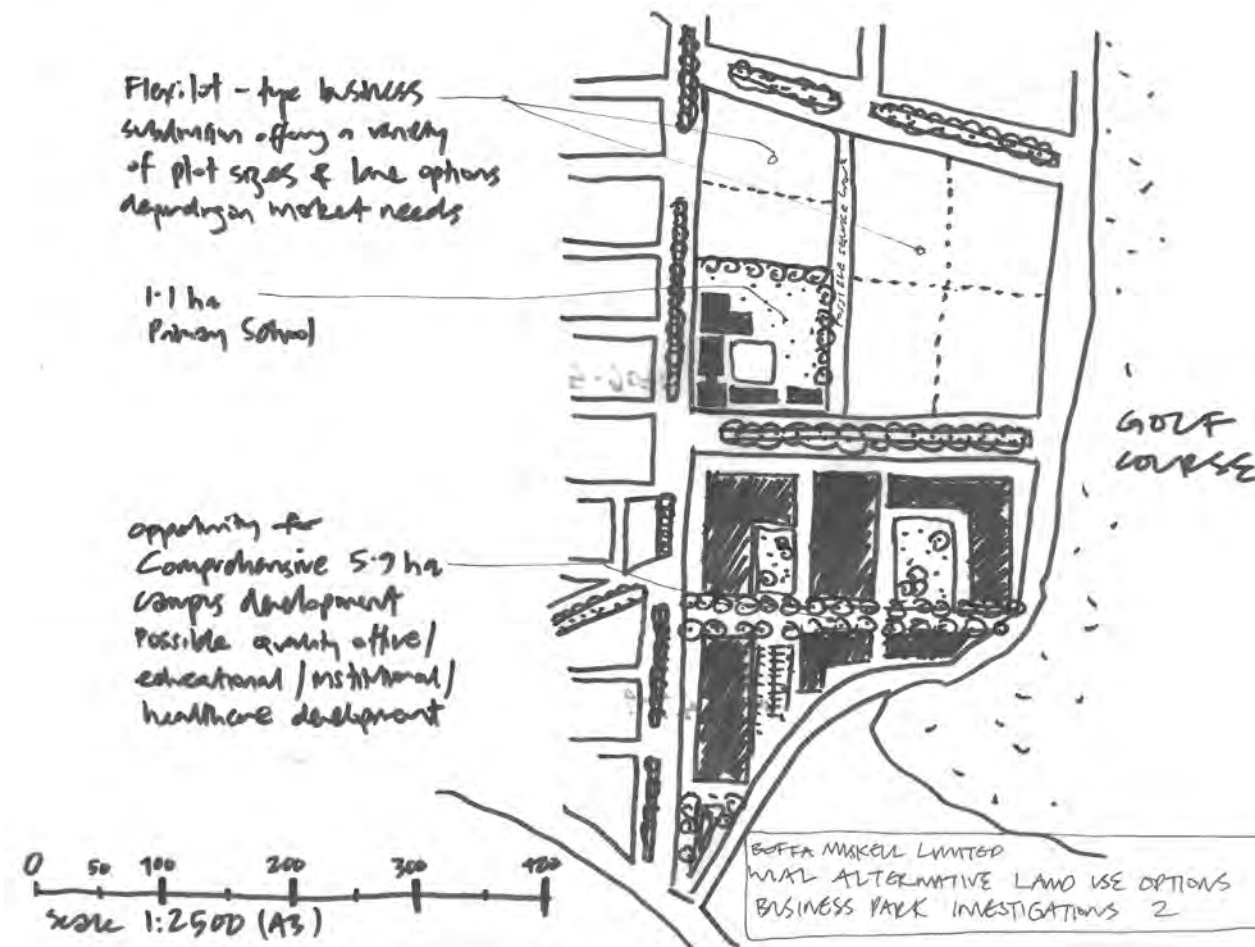 Flexilot - type business
subdivision offering a variety
of plot sizes & lane options
depending on market needs
1.1 ha
Primary School
opportunity for
Comprehensive 5.9 ha
campus development
Possible quality office/
educational / institutional /
healthcare development
possible service lane
GOLF
COURSE
0 50 100 200 300 400
scale 1:2500 (A3)
BOFFA MISKELL LIMITED
WIAL ALTERNATIVE LAND USE OPTIONS
BUSINESS PARK INVESTIGATIONS 2